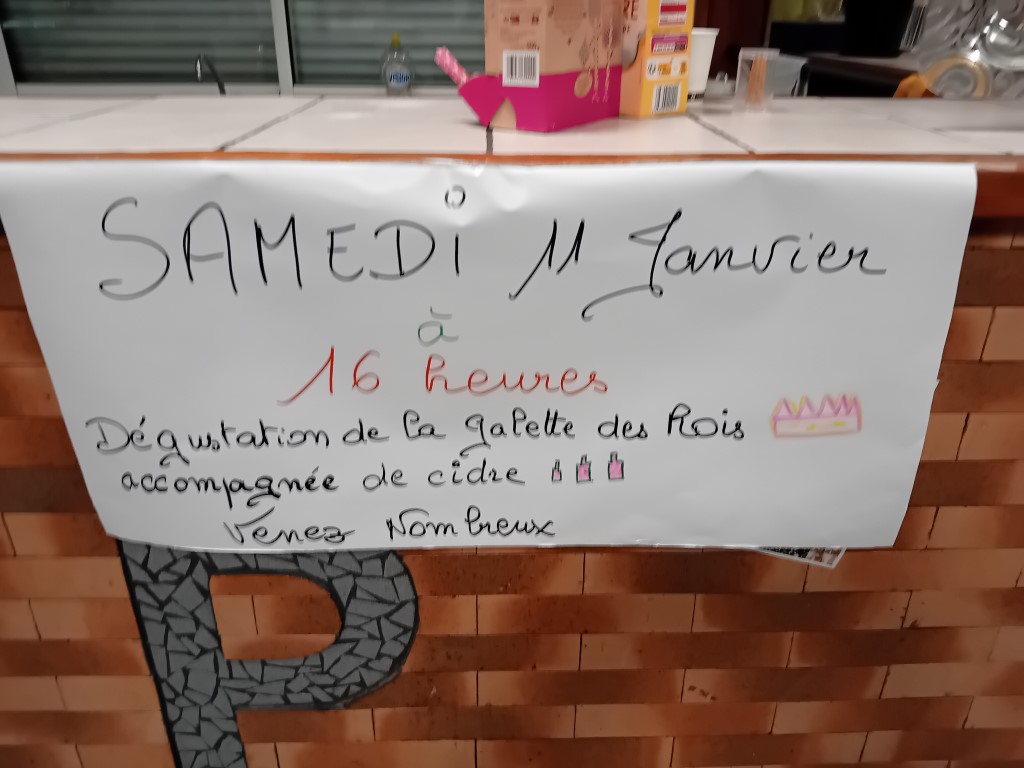 SAMEDI 11 Janvier
à
16 heures
Dégustation de la galette des Rois
accompagnée de cidre
Venez Nombreux
P